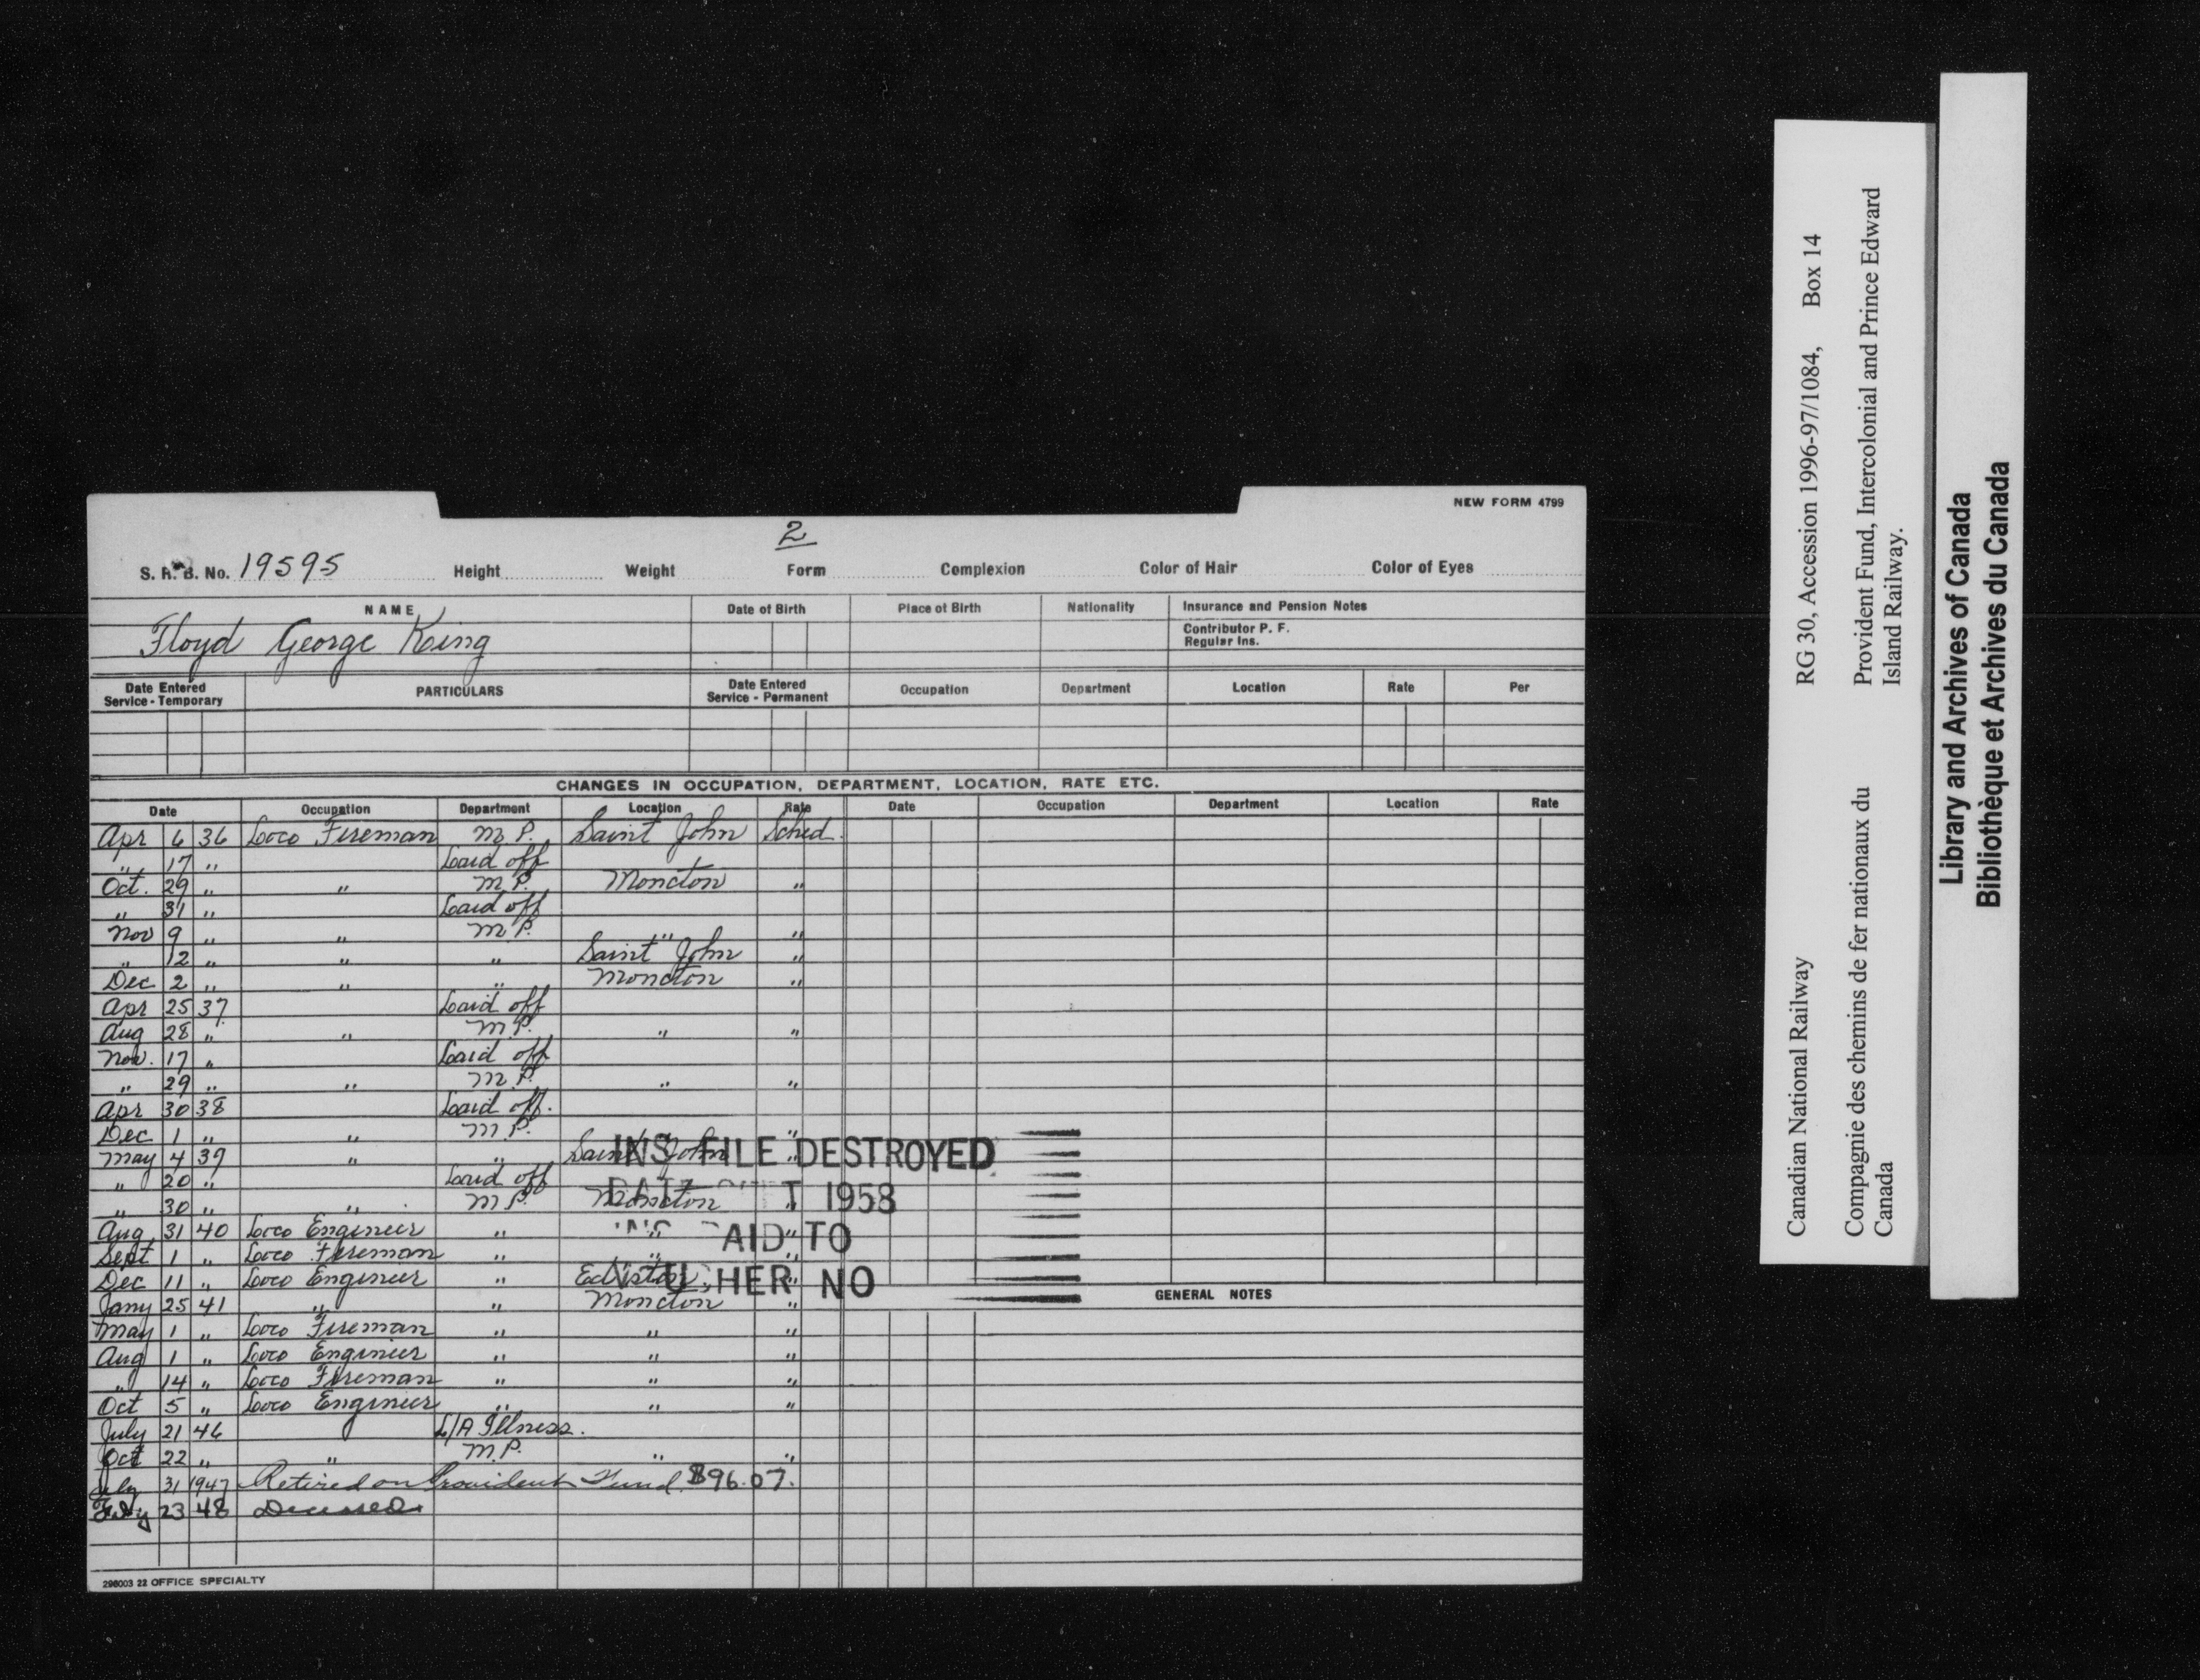 NEW FORM 4799
2
S. R. B. No. 19595 Height Weight Form Complexion Color of Hair Color of Eyes
NAME Date of Birth Place of Birth Nationality Insurance and Pension Notes
Floyd George King Contributor P. F.
Regular Ins.
Date Entered Service - Temporary PARTICULARS Date Entered Service - Permanent Occupation Department Location Rate Per
CHANGES IN OCCUPATION, DEPARTMENT, LOCATION, RATE ETC.
Date Occupation Department Location Rate Date Occupation Department Location Rate
Apr 6 36 Loco Fireman M.P. Saint John Sched.
" 17 " Laid off
Oct. 29 " " M.P. Moncton "
" 31 " Laid off
Nov 9 " " M.P. " "
" 12 " " " Saint John "
Dec 2 " " " Moncton "
Apr 25 37 Laid off
Aug 28 " " M.P. " "
Nov. 17 " Laid off
" 29 " " M.P. " "
Apr 30 38 Laid off.
Dec 1 " " M.P. "
May 4 39 " " Saint John "
" 20 " Laid off
" 30 " " M.P. Moncton "
Aug 31 40 Loco Engineer " " "
Sept 1 " Loco Fireman " " "
Dec 11 " Loco Engineer " "
Jany 25 41 " " Moncton "
May 1 " Loco Fireman " " "
Aug 1 " Loco Engineer " " "
" 14 " Loco Fireman " " "
Oct 5 " Loco Engineer " " "
July 21 46 L/A Illness.
Oct 22 " " M.P. " "
July 31 1947 Retired on Provident Fund $96.07.
Feby 23 48 Deceased
INS FILE DESTROYED
1958
TO
NO
GENERAL NOTES
296003 22 OFFICE SPECIALTY
Canadian National Railway RG 30, Accession 1996-97/1084, Box 14
Compagnie des chemins de fer nationaux du Canada
Provident Fund, Intercolonial and Prince Edward Island Railway.
Library and Archives of Canada
Bibliothèque et Archives du Canada